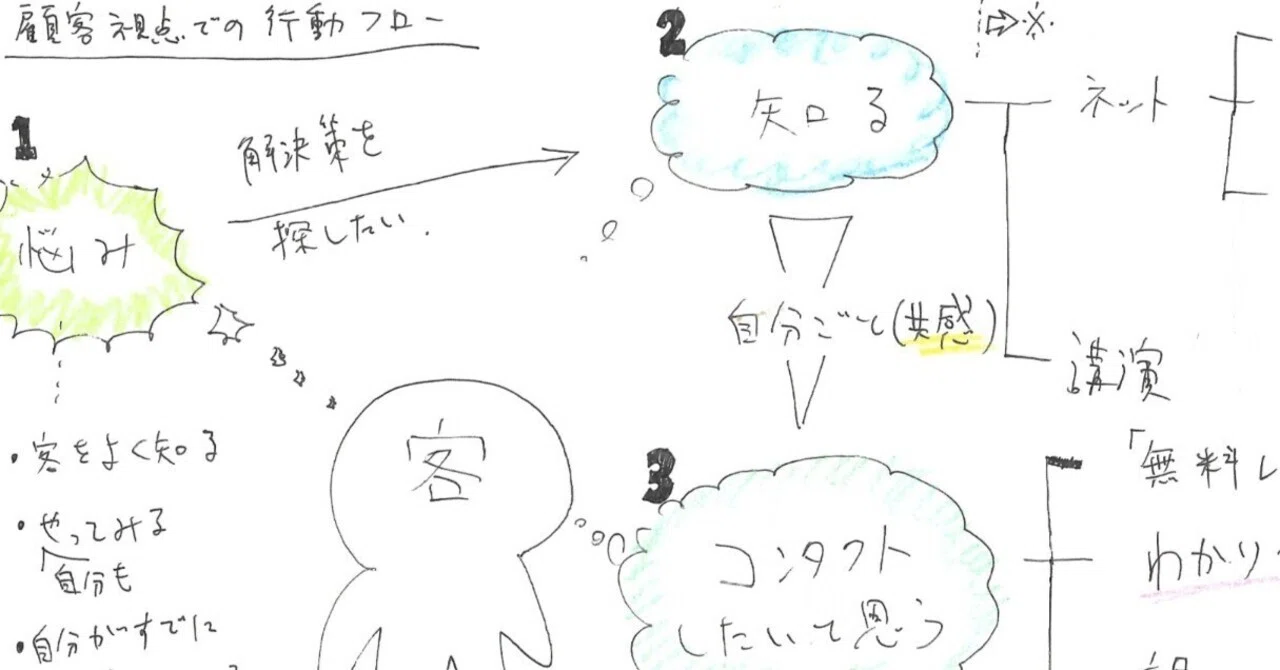 顧客視点での行動フロー
1
悩み
解決策を
探したい.
2
知る
⇨※
ネット
講演
自分ごと(共感)
客
・客をよく知る
・やってみる
「自分も
・自分がすでに
3
コンタクト
したいて思う
「無料し
わかり